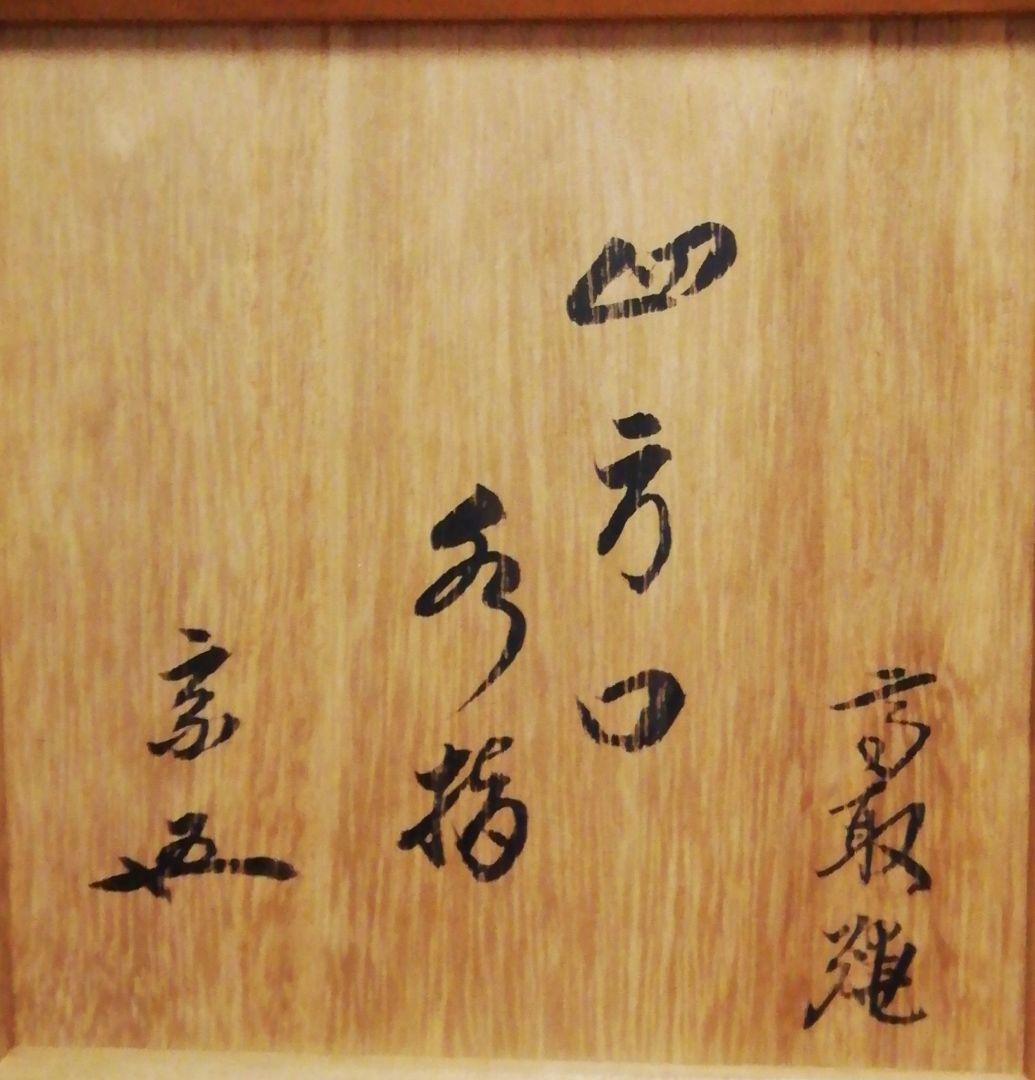 高取
四方口
水指
宗